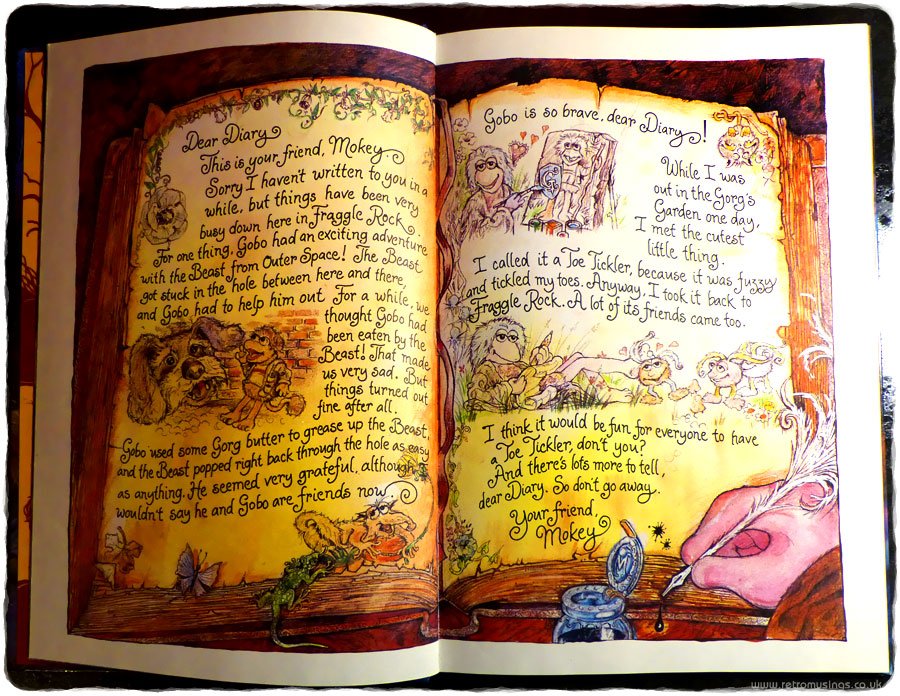 Dear Diary
This is your friend, Mokey.
Sorry I haven't written to you in a
while, but things have been very
busy down here in Fraggle Rock.
For one thing, Gobo had an exciting adventure
with the Beast from Outer Space! The Beast
got stuck in the hole between here and there,
and Gobo had to help him out. For a while, we
thought Gobo had
been eaten by the
Beast! That made
us very sad. But
things turned out
fine after all.
Gobo used some Gorg butter to grease up the Beast,
and the Beast popped right back through the hole as easy
as anything. He seemed very grateful, although I
wouldn't say he and Gobo are friends now.
Gobo is so brave, dear Diary!
While I was
out in the Gorg's
Garden one day,
I met the cutest
little thing.
I called it a Toe Tickler, because it was fuzzy
and tickled my toes. Anyway, I took it back to
Fraggle Rock. A lot of its friends came too.
I think it would be fun for everyone to have
a Toe Tickler, don't you?
And there's lots more to tell,
dear Diary. So don't go away.
Your friend,
Mokey
www.retromusings.co.uk